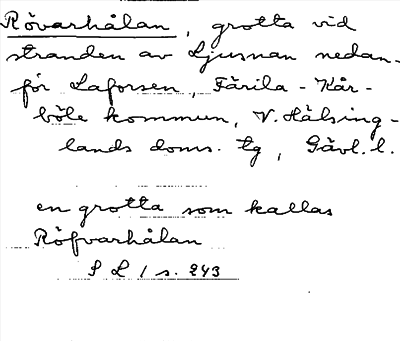 Rövarhålan, grotta vid
stranden av Ljusnan nedan-
för Laforsen, Färila - Kår-
böle kommun, V. Hälsing-
lands doms. tg, Gävl. l.
en grotta som kallas
Röfvarhålan
S L 1 s. 243